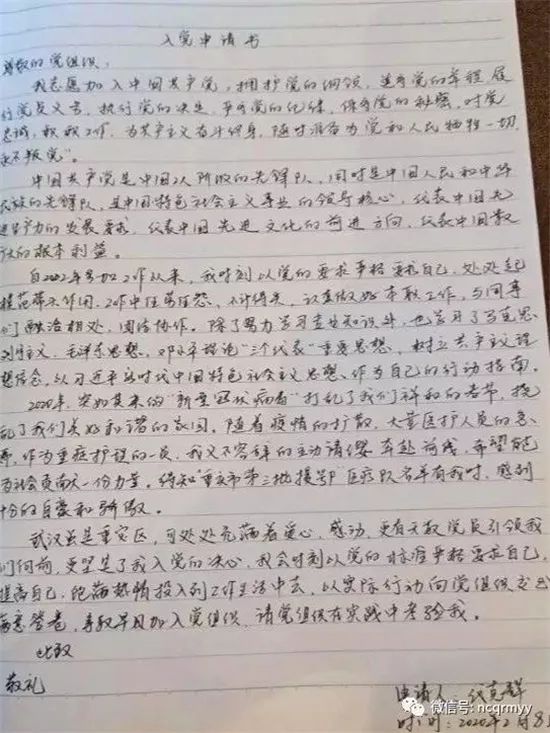 入党申请书
尊敬的党组织:
我志愿加入中国共产党,拥护党的纲领,遵守党的章程,履
行党员义务,执行党的决定,严守党的纪律,保守党的秘密,对党
忠诚,积极工作,为共产主义奋斗终身,随时准备为党和人民牺牲一切,
永不叛党”。
中国共产党是中国工人阶级的先锋队,同时是中国人民和中华
民族的先锋队,是中国特色社会主义事业的领导核心,代表中国先
进生产力的发展要求,代表中国先进文化的前进方向,代表中国最
大的根本利益。
自2002年参加工作以来,我时刻以党的要求严格要求自己,处处起
模范带头作用,工作中任劳任怨,不计得失,认真做好本职工作,与同事
们融洽相处,团结协作。除了努力学习专业知识外,也学习了马克思
列宁主义,毛泽东思想,邓小平理论“三个代表”重要思想,树立共产主义理
想信念,以习近平新时代中国特色社会主义思想,作为自己的行动指南。
2020年,突如其来的“新型冠状病毒”打乱了我们祥和的春节,搅
乱了我们美好和谐的家园。随着疫情的扩散,大量医护人员的急
需,作为重症护理的一员,我义不容辞的主动请缨,奔赴前线,希望能
为社会贡献一份力量。得知“重庆市第三批援鄂”医疗队名单有我时,感到
恰的自豪和骄傲。
武汉虽是重灾区,可处处充满着爱心,感动,更有无数党员引领我
们向前,更坚定了我入党的决心,我会时刻以党的标准严格要求自己,
提高自己,饱满热情投入到工作生活中去,以实际行动向党组织交出
满意答卷,争取早日加入党组织,请党组织在实践中考验我。
此致
敬礼
申请人:代克群
时间:2020年2月8日
微信号: ncqrmyy